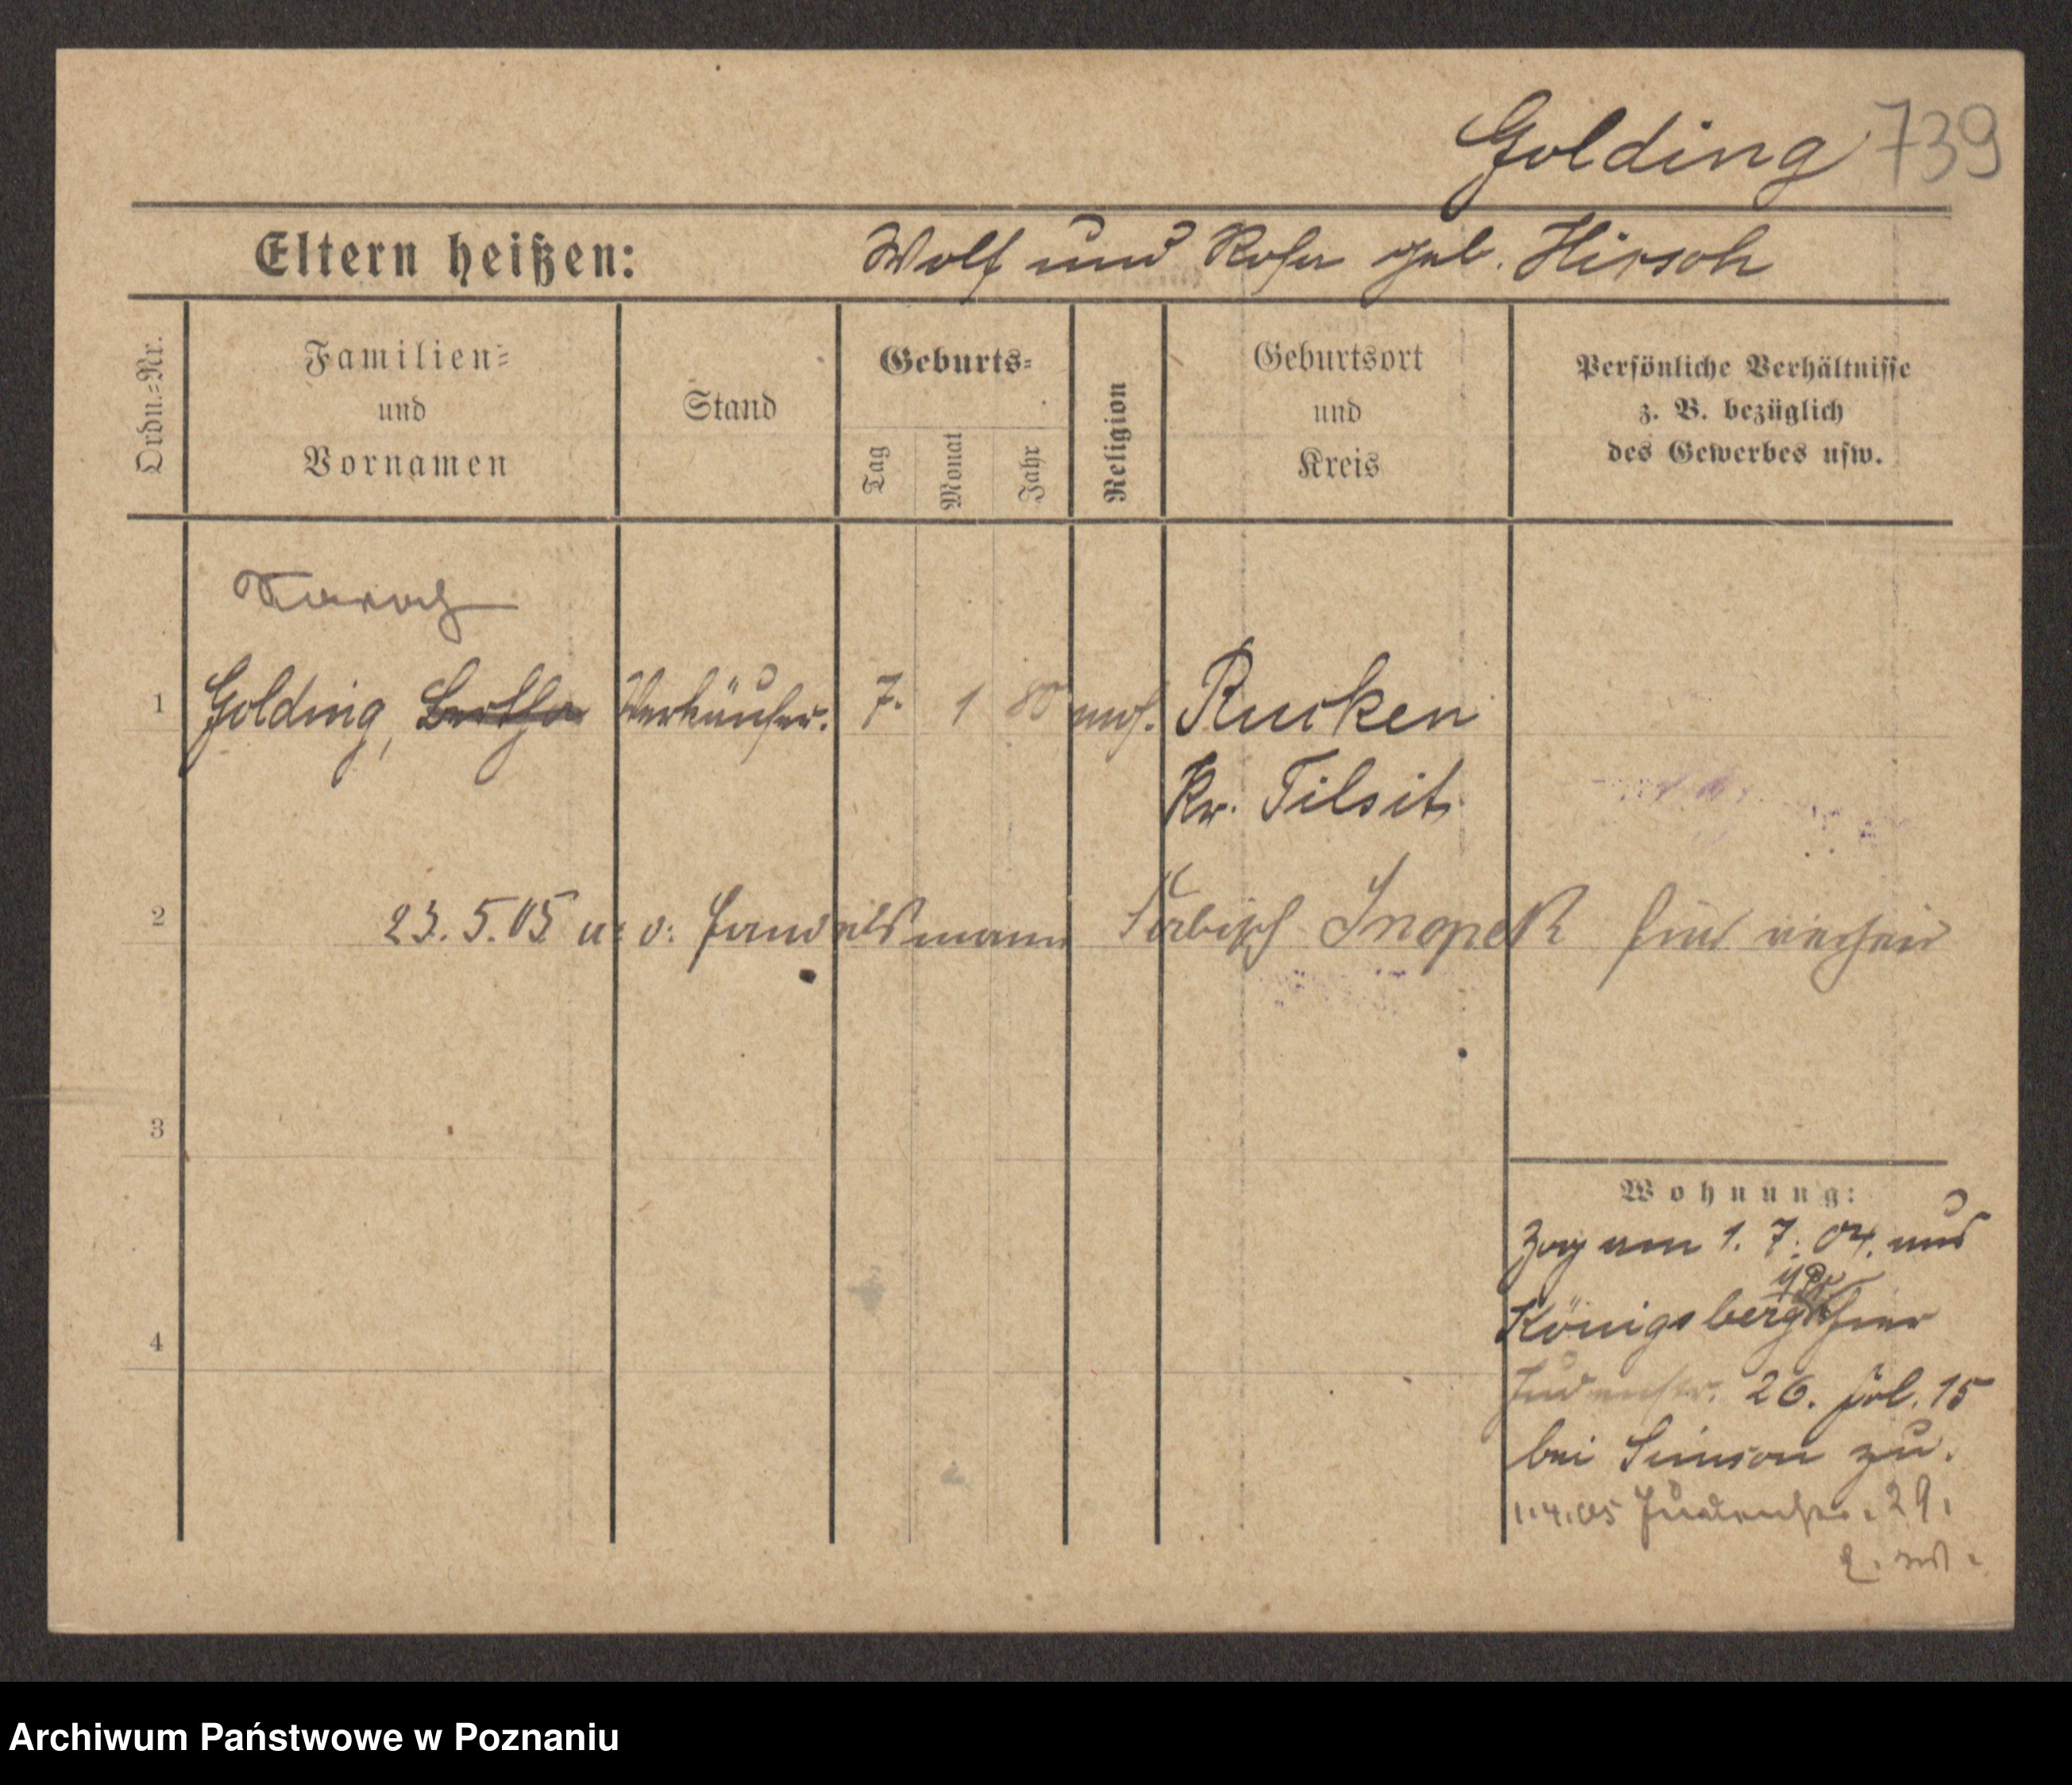 Golding 739
Eltern heißen: Wolf und Rosa geb. Hirsch
Ordn.=Nr.
Familien=
und
Vornamen
Stand
Geburts=
Tag
Monat
Jahr
Religion
Geburtsort
und
Kreis
Persönliche Verhältnisse
z. B. bezüglich
des Gewerbes usw.
1 Golding, Bertha Verkäufer. 7. 1 80 mos. Rucken
Kr. Tilsit
2 23.5.05 u. d. Handelsmann Inopek hier
3
4
Wohnung:
Zog am 1. 7. 04. aus
Königsberg hier
Judenstr. 26. 15
bei Simson zu.
1.4.05 Judenstr. 29.
Archiwum Państwowe w Poznaniu